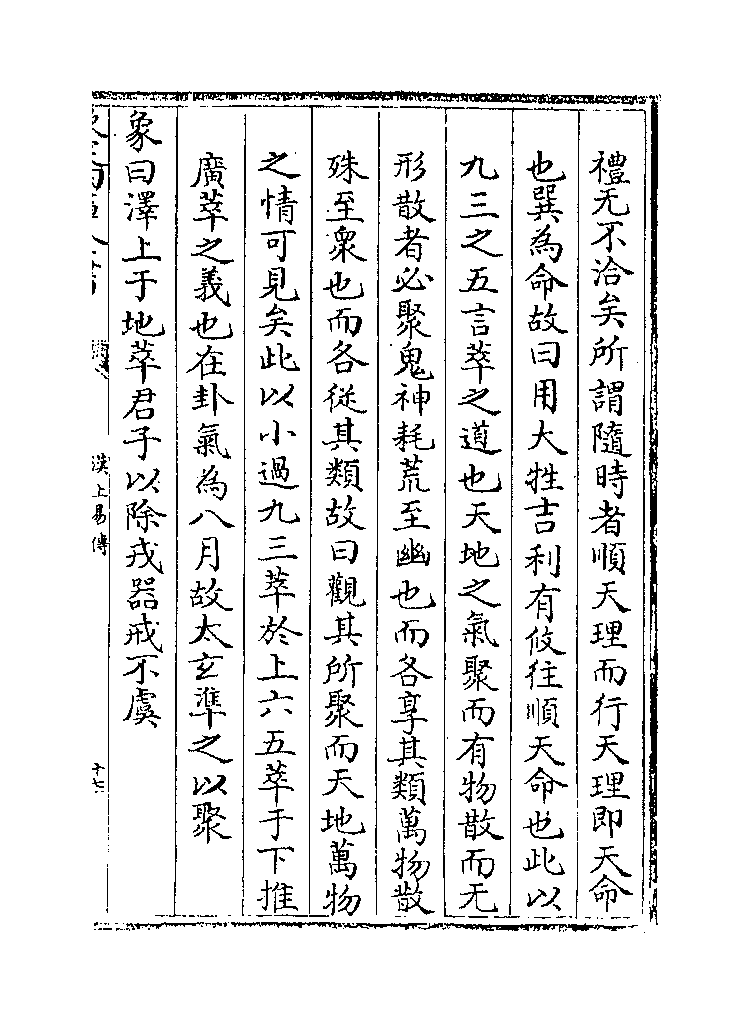 禮无不洽矣所謂隨時者順天理而行天理即天命
也巽為命故曰用大牲吉利有攸往順天命也此以
九三之五言萃之道也天地之氣聚而有物散而无
形散者必聚鬼神耗荒至幽也而各享其類萬物散
殊至衆也而各從其類故曰觀其所聚而天地萬物
之情可見矣此以小過九三萃於上六五萃于下推
廣萃之義也在卦氣為八月故太玄準之以聚
象曰澤上于地萃君子以除戎器戒不虞
漢上易傳
十七